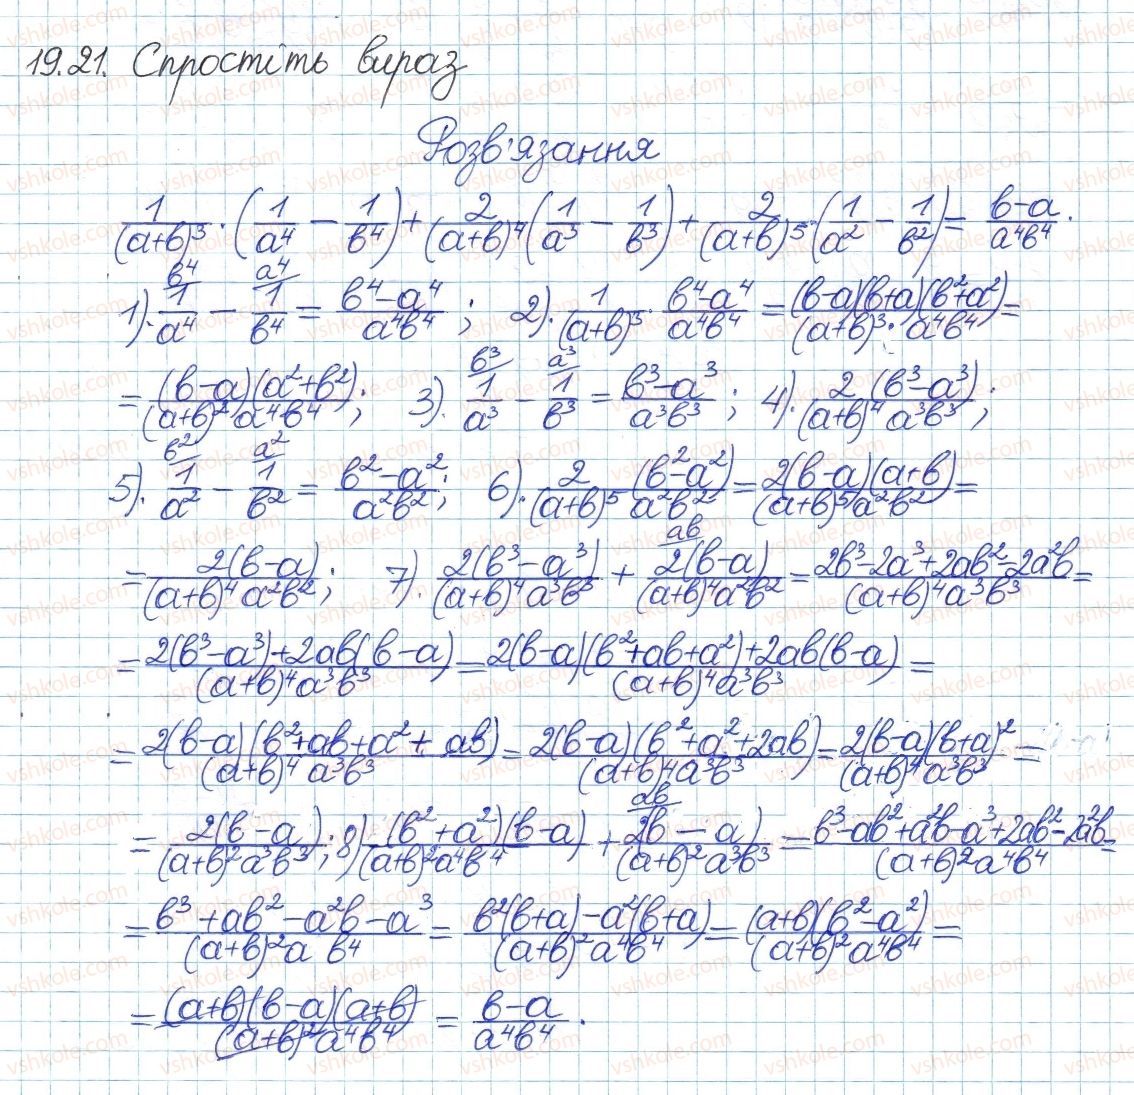 19.21. Спростіть вираз
Розв'язання
1/(a+b)^3 · (1/a^4 − 1/b^4) + 2/(a+b)^4 (1/a^3 − 1/b^3) + 2/(a+b)^5 · (1/a^2 − 1/b^2) = (b−a)/(a^4b^4).
1). b^4/ 1/a^4 − a^4/ 1/b^4 = (b^4−a^4)/(a^4b^4); 2). 1/(a+b)^3 · (b^4−a^4)/(a^4b^4) = (b−a)(b+a)(b^2+a^2)/((a+b)^3 · a^4b^4) =
= (b−a)(a^2+b^2)/((a+b)^2 a^4b^4); 3). b^3/ 1/a^3 − a^3/ 1/b^3 = (b^3−a^3)/(a^3b^3); 4). 2(b^3−a^3)/((a+b)^4 a^3b^3);
5). b^2/ 1/a^2 − a^2/ 1/b^2 = (b^2−a^2)/(a^2b^2); 6). 2/(a+b)^5 · (b^2−a^2)/(a^2b^2) = 2(b−a)(a+b)/((a+b)^5a^2b^2) =
= 2(b−a)/((a+b)^4 a^2b^2); 7). 2(b^3−a^3)/((a+b)^4a^3b^3) + ab/ 2(b−a)/((a+b)^4a^2b^2) = (2b^3−2a^3+2ab^2−2a^2b)/((a+b)^4a^3b^3) =
= (2(b^3−a^3)+2ab(b−a))/((a+b)^4a^3b^3) = (2(b−a)(b^2+ab+a^2)+2ab(b−a))/((a+b)^4a^3b^3) =
= 2(b−a)(b^2+ab+a^2+ab)/((a+b)^4 a^3b^3) = 2(b−a)(b^2+a^2+2ab)/((a+b)^4a^3b^3) = 2(b−a)(b+a)^2/((a+b)^4a^3b^3) =
= 2(b−a)/((a+b)^2a^3b^3); 8) (b^2+a^2)(b−a)/((a+b)^2a^4b^4) + ab/ 2(b−a)/((a+b)^2a^3b^3) = (b^3−ab^2+a^2b−a^3+2ab^2−2a^2b)/((a+b)^2a^4b^4) =
= (b^3+ab^2−a^2b−a^3)/((a+b)^2a b^4) = (b^2(b+a)−a^2(b+a))/((a+b)^2a^4b^4) = (a+b)(b^2−a^2)/((a+b)^2a^4b^4) =
= (a+b)(b−a)(a+b)/((a+b)^2a^4b^4) = (b−a)/(a^4b^4).